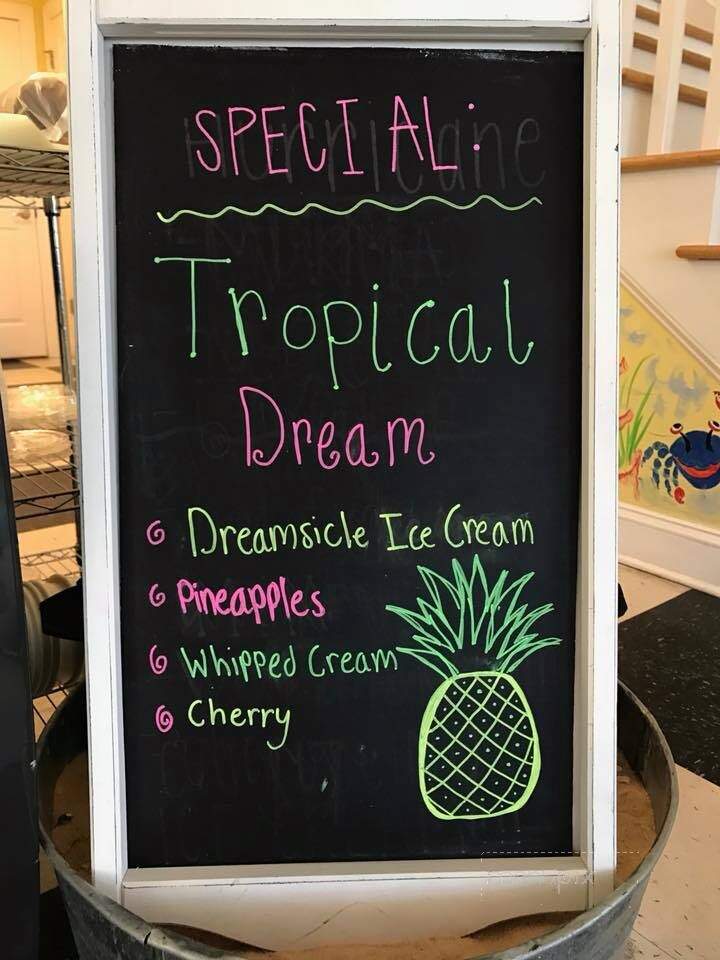 SPECIAL:
Hurricane
Tropical
Dream
Dreamsicle Ice Cream
Pineapples
Whipped Cream
Cherry